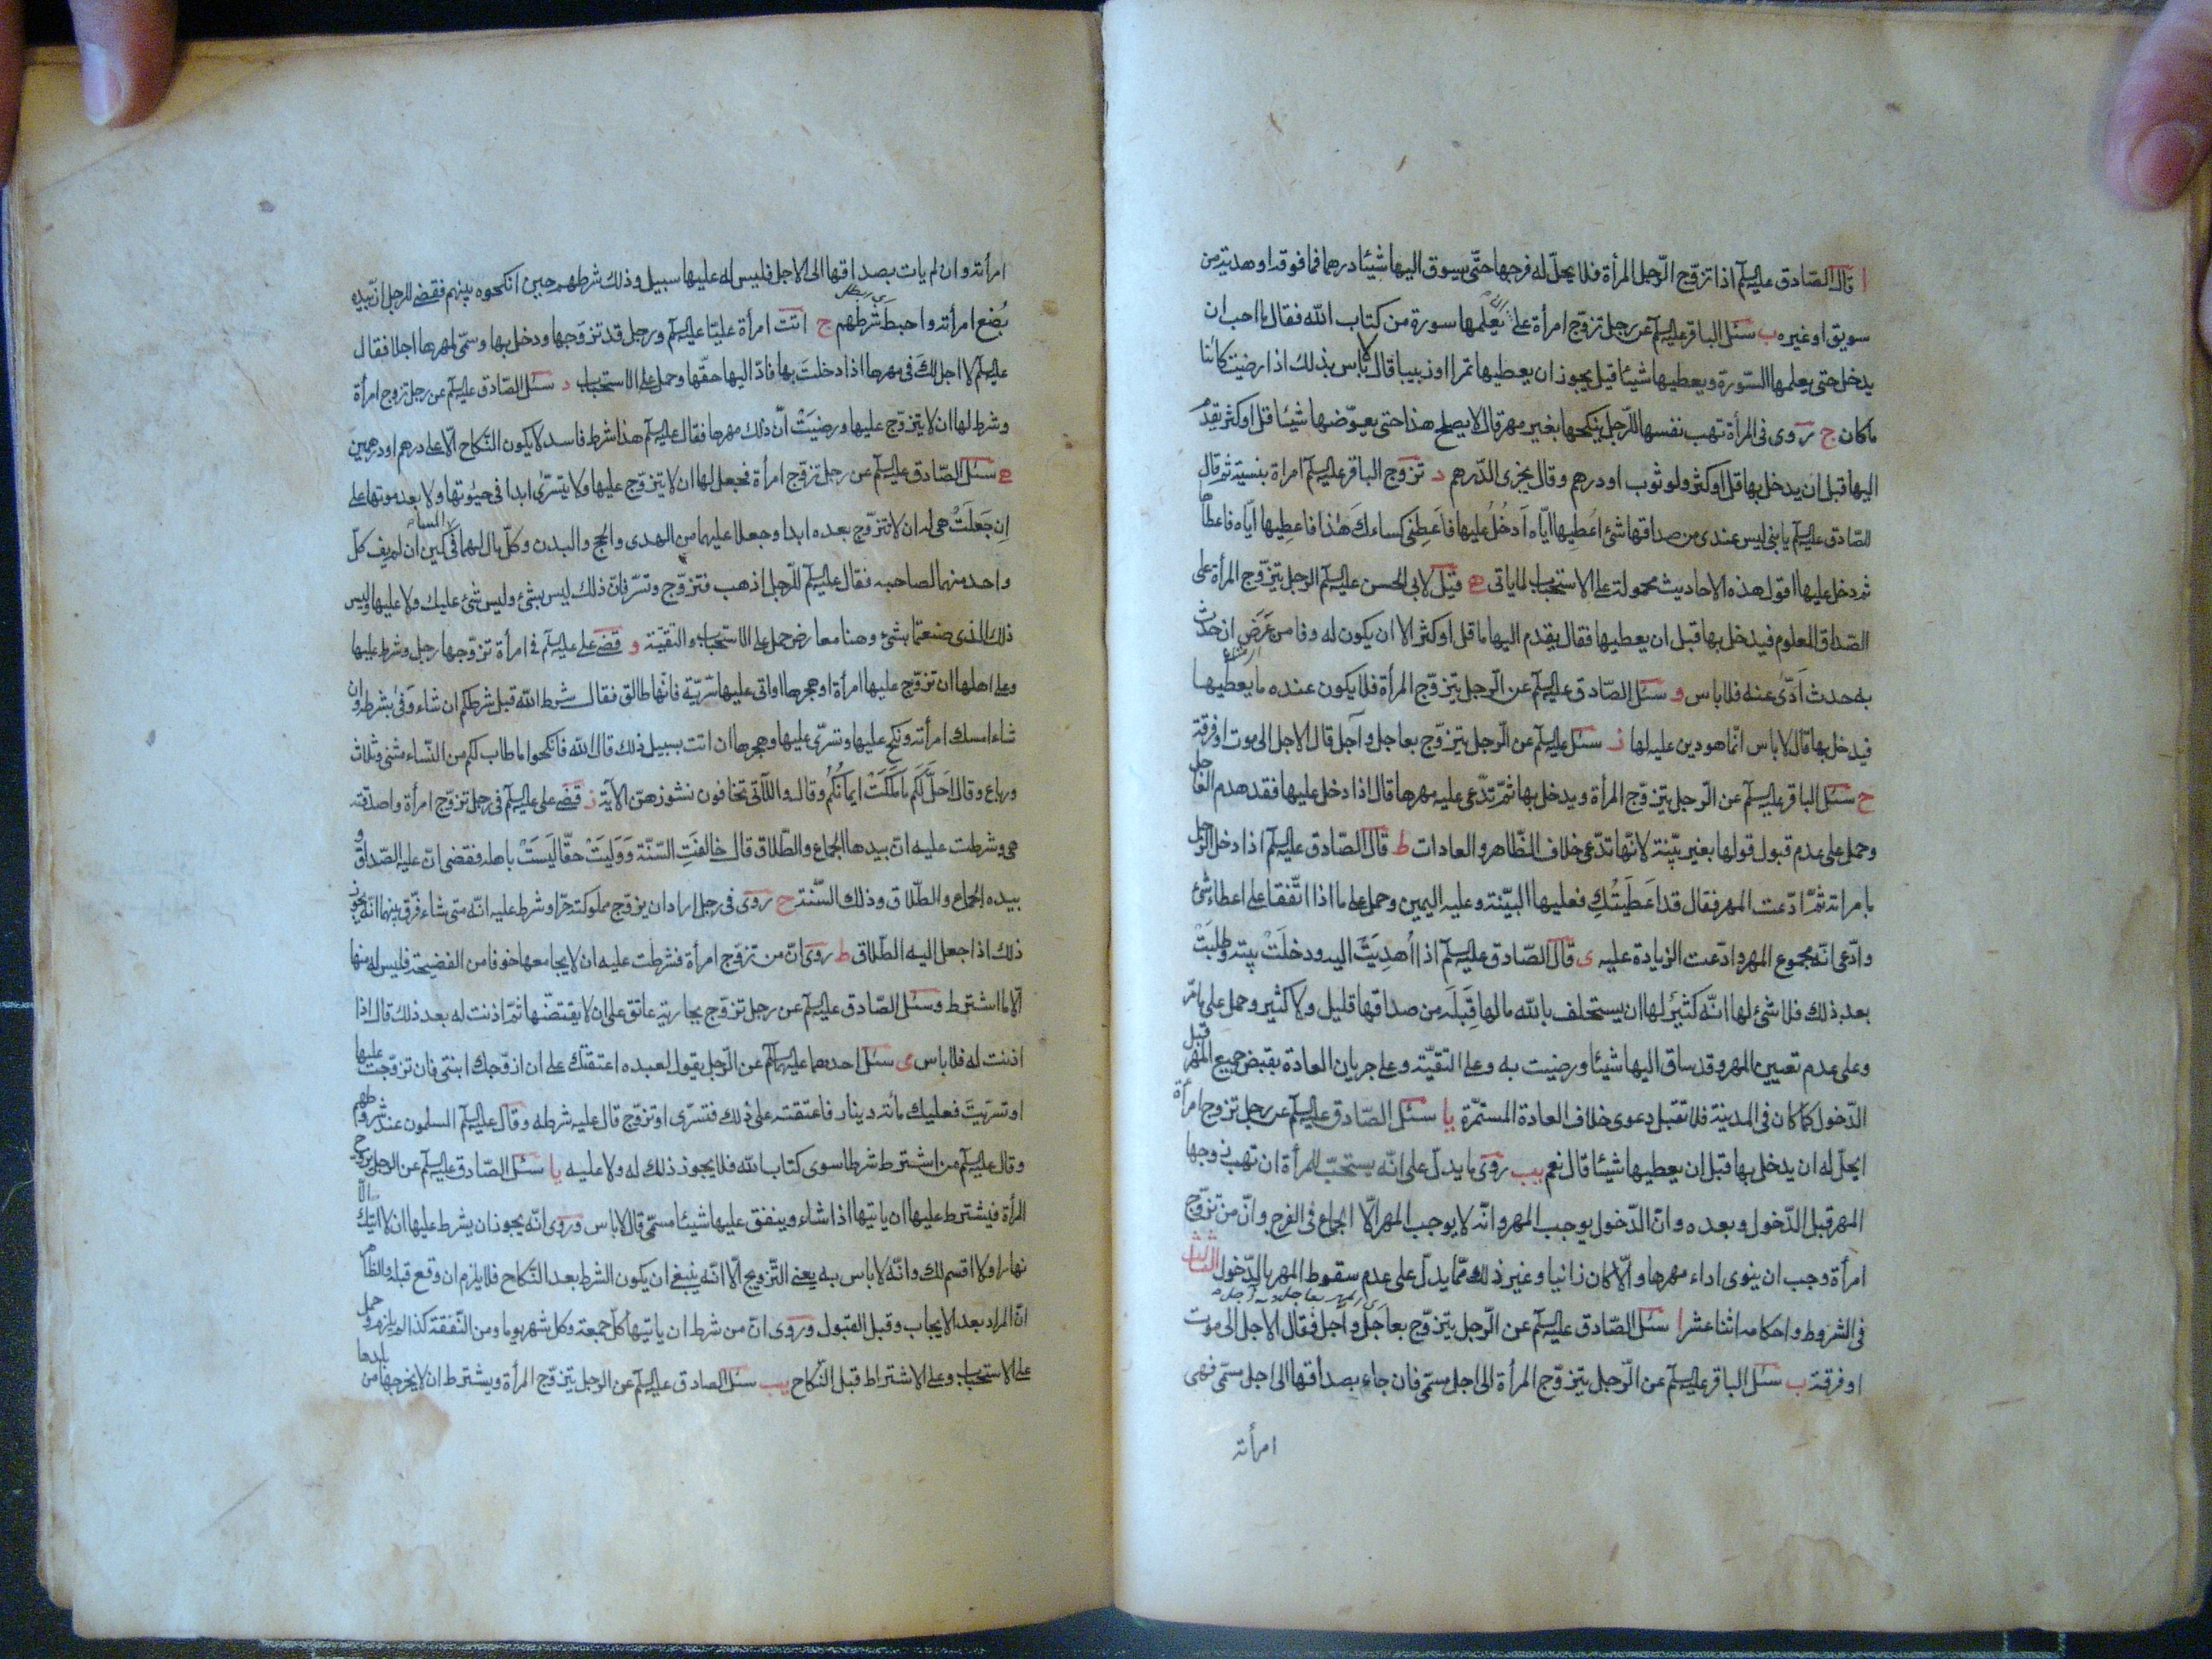 ا قال الصّادق عليه السلم اذا تزوّج الرّجل المرأة فلا يحلّ له فرجها حتّى يسوق اليها شيئا درهما فما فوقه او هدية من
سويق او غيره ب سئل الباقر عليه السلم عن رجل تزوّج امرأة على ان يعلّمها سورة من كتاب الله فقال ما احب ان
يدخل حتى يعلمها السّورة ويعطيها شيئا قيل يجوز ان يعطيها تمرا او زبيبا قال لا باس بذلك اذا رضيت كائنا
ما كان ج روى فى المرأة تهب نفسها للرّجل ينكحها بغير مهر قال لا يصلح هذا حتى يعوّضها شيئا قل او كثر يقدّم
اليها قبل ان يدخل بها قل او كثر ولو ثوب او درهم وقال يجزى الدّرهم د تزوج الباقر عليه السلم امراة بنسيئة ثم قال
للصّادق عليه السلم يا بنى ليس عندى من صداقها شئ اُعطيها ايّاه اَدخُل عليها فاَعطِنى كساءكَ هٰذا فاعطِيها ايّاه فاعطاها
ثم دخل عليها اقول هذه الاحاديث محمولة على الاستحباب لما ياتى ه قيل لابى الحسن عليه السلم الرجل يتزوّج المرأة على
الصّداق المعلوم فيدخل بها قبل ان يعطيها فقال يقدم اليها ما قل او كثر الا ان يكون له وفا من عَرَضٍ ان حدث
به حدث اَدّى عنه فلا باس و سئل الصّادق عليه السلم عن الرّجل يتزوّج المرأة فلا يكون عنده ما يعطيها
فيدخل بها قال لا باس انّما هو دين عليه لها ز سئل عليه السلم عن الرّجل يتزوّج بعاجل وآجل قال الاجل الى موت او فرقة
ح سئل الباقر عليه السلم عن الرّجل يتزوّج المرأة ويدخل بها ثمّ تدّعى عليه مهرها قال اذا دخل عليها فقد هدم العاجل
وحمل على عدم قبول قولها بغير بيّنة لانّها تدّعى خلاف الظّاهر والعادات ط قال الصّادق عليه السلم اذا دخل الرّجل
بامراته ثمّ ادّعت المهر فقال قد اَعطَيتُكِ فعليها البيّنة وعليه اليمين وحمل على ما اذا اتّفقا على اعطاء شئ
وادّعى انّه مجموع المهر وادّعت الزيادة عليه ى قال الصّادق عليه السلم اذا اُهدِيَتْ اليه ودخلَتْ بيته وطلبَتْ
بعد ذلك فلا شئ لها انّه كثير لها ان يستحلف بالله ما لها قِبَلَه من صداقها قليل ولا كثير وحمل على ما مرّ
وعلى عدم تعيين المهر وقد ساق اليها شيئا ورضيت به وعلى التقيّة وعلى جريان العادة بقبض جميع المهر قبل
الدّخول كما كان فى المدينة فلا تقبل دعوى خلاف العادة المستمرّة يا سئل الصّادق عليه السلم عن رجل تزوج امرأة
ايحلّ له ان يدخل بها قبل ان يعطيها شيئا قال نعم يب روى ما يدلّ على انّه يستحبّ للمرأة ان تهب زوجها
المهر قبل الدّخول وبعده وانّ الدّخول يوجب المهر وانّه لا يوجب المهر الّا الجماع فى الفرج وانّ من تزوّج
امرأة وجب ان ينوى اداء مهرها والّا كان زانيا وغير ذلك ممّا يدلّ على عدم سقوط المهر بالدّخول الثالث
فى الشروط واحكامه اثنا عشر ا سئل الصّادق عليه السلم عن الرّجل يتزوّج بعاجل وآجل فقال الاجل الى موت
او فرقة ب سئل الباقر عليه السلم عن الرّجل يتزوّج المرأة الى اجل مسمّى فان جاء بصداقها الى اجل مسمّى فهى
امرأته
امرأته وان لم يات بصداقها الى الاجل فليس له عليها سبيل وذلك شرطهم حين انكحوه بينهم فقضى للرجل انّ بيده
بُضع امرأته واحبط شرطهم ج اتت امرأة عليّا عليه السلم ورجل قد تزوّجها ودخل بها وسمّى لمهرها اجلا فقال
عليه السلم لا اجل لك فى مهرها اذا دخلتَ بها فادّ اليها حقّها وحمل على الاستحباب د سئل الصّادق عليه السلم عن رجل تزوج امرأة
وشرط لها ان لا يتزوّج عليها ورضيَتْ انّ ذلك مهرها فقال عليه السلم هذا شرط فاسد لا يكون النّكاح الّا على درهم او درهمين
ه سئل الصّادق عليه السلم عن رجل تزوّج امرأة فجعل لها ان لا يتزوّج عليها ولا يتسرّى ابدا فى حيٰوتها ولا بعد موتها على
اِن جَعلَتْ هى له ان لا تتزوّج بعده ابدا وجعلا عليهما من الهدى والحج والبدن وكلّ مال لهما فى المساكين ان لم يف كلّ
واحد منهما لصاحبه فقال عليه السلم للرّجل اذهب فتزوّج وتسرّ فانّ ذلك ليس بشئ وليس شئ عليك ولا عليها وليس
ذلك الّذى صنعتما بشئ وهنا معارض حمل على الاستحباب والتقيّة و قضى على عليه السلم فى امرأة تزوّجها رجل وشرط عليها
وعلى اهلها ان تزوّج عليها امرأة او هجرها او اتى عليها سّريّة فانّها طالق فقال شرط الله قبل شرطكم ان شاء وَفىٰ بشرطه وان
شاء امسك امرأته ونكح عليها وتسرّى عليها وهجرها ان اتت بسبيل ذلك قال الله فانكحوا ما طاب لكم من النّساء مثنى وثلاث
ورباع وقال اُحلّ لكم ما مَلَكَتْ ايمانُكُم وقال واللّاتى تخافون نشوزهنّ الآية ز قضى على عليه السلم فى رجل تزوّج امرأة واصدقته
هى وشرطت عليه انّ بيدها الجماع والطّلاق قال خالفَتِ السّنّة وَوَليَتْ حقّا ليَسَتْ باهله فقضى انّ عليه الصّداق و
بيده الجماع والطّلاق وذلك السّنّة ح روى فى رجل اراد ان يزوّج مملوكته حرّا وشرط عليه انّه متى شاء فرّق بينهما انّه يجوز
ذلك اذا جعل اليه الطّلاق ط روى انّ من تزوّج امرأة فشرطت عليه ان لا يجامعها خوفا من الفضيحة فليس له منها
الّا ما اشترط وسئل الصّادق عليه السلم عن رجل تزوّج بجارية عاتق على ان لا يقتضّها ثمّ اذنت له بعد ذلك قال اذا
اذنت له فلا باس ى سئل احدهما عليهما السلم عن الرّجل يقول لعبده اعتقتك على ان ازوّجك ابنتى فان تزوّجت عليها
او تسرّيتَ فعليك مأئة دينار فاعتقته على ذلك فتسرّى او تزوّج قال عليه شرطه وقال عليه السلم المسلمون عند شروطهم
وقال عليه السلم من اشترط شرطا سوى كتاب الله فلا يجوز ذلك له ولا عليه يا سئل الصّادق عليه السلم عن الرجل يتزوج
المرأة فيشترط عليها ان ياتيها اذا شاء وينفق عليها شيئا مسمّى قال لا باس وروى انّه يجوز ان يشرط عليها ان لا اتيك الّا
نهارا ولا اقسم لك وانّه لا باس به يعنى التّزويج الّا انّه ينبغى ان يكون الشرط بعد النّكاح فلا يلزم ان وقع قبله والظاهر
انّ المراد بعد الايجاب وقبل القبول وروى انّ من شرط ان ياتيها كلّ جمعة وكل شهر يوما ومن النّفقة كذا لم يلزم وحمل
على الاستحباب وعلى الاشتراط قبل النّكاح يب سئل الصادق عليه السلم عن الرجل يتزوّج المرأة ويشترط ان لا يخرجها من بلدها